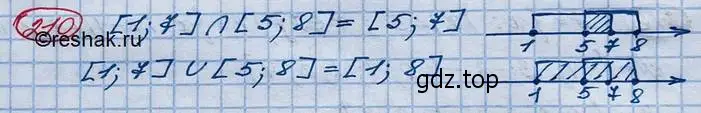 210 [1; 7] ∩ [5; 8] = [5; 7]
©reshak.ru
1 5 7 8
[1; 7] ∪ [5; 8] = [1; 8]
gdz.top
1 5 7 8